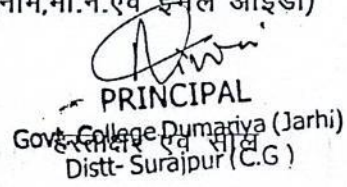 नाम,मो.नं.एवं ईमेल आईडी)
PRINCIPAL
Govt. College Dumariya (Jarhi)
हस्ताक्षर एवं सील
Distt- Surajpur (C.G )